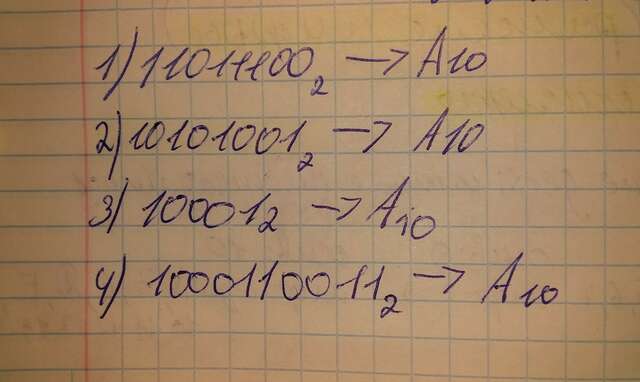 1) 11011100₂ → A10
2) 10101001₂ → A10
3) 10001₂ → A₁₀
4) 1000110011₂ → A₁₀